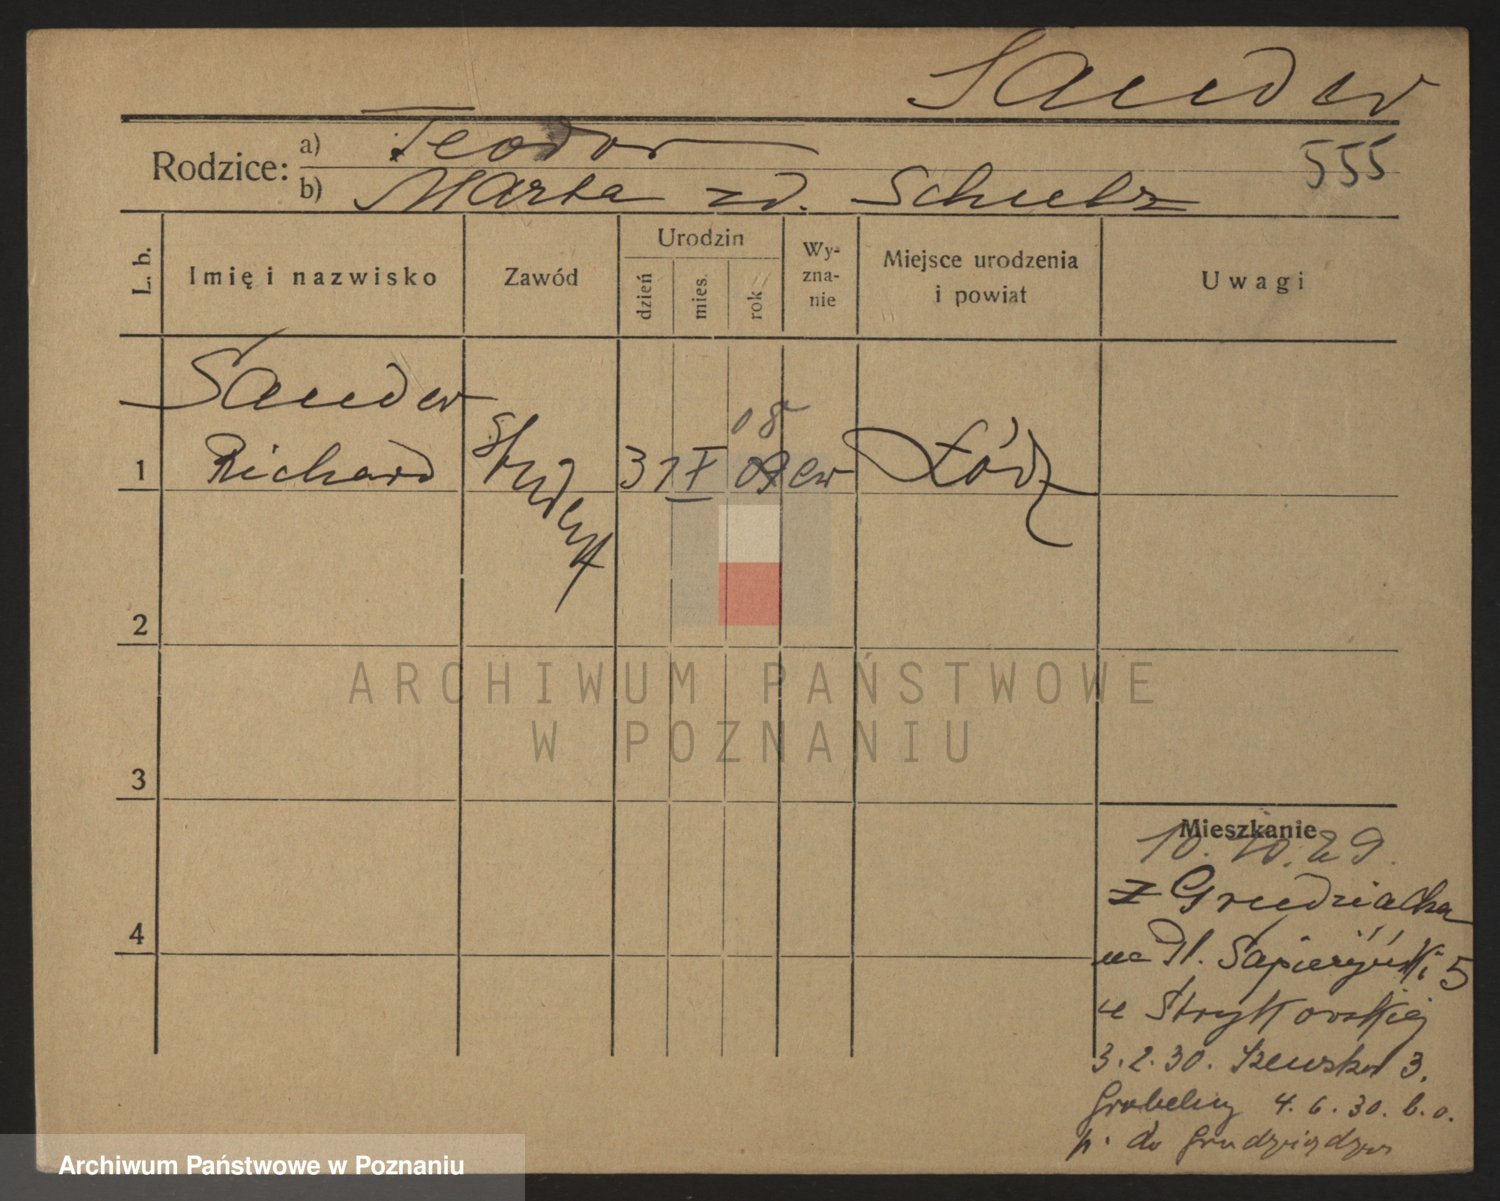 Sander
Rodzice: a) Teodor
555
b) Marta zd. Schulz
L. b.
Imię i nazwisko
Zawód
Urodzin
dzień
mies.
rok
Wy-
zna-
nie
Miejsce urodzenia
i powiat
Uwagi
Sander
08
1 Richard Student 31 X 07 ew Łódź
2
3
4
ARCHIWUM PAŃSTWOWE
W POZNANIU
Mieszkanie
10.10.29.
z Grudziądza
na Pl. Sapieżyński 5
u Strykowskiej
3.2.30. Szewska 3.
4.6.30. b.o.
p. do Grudziądza
Archiwum Państwowe w Poznaniu